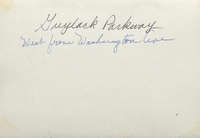 Greylock Parkway
West from Washington Ave